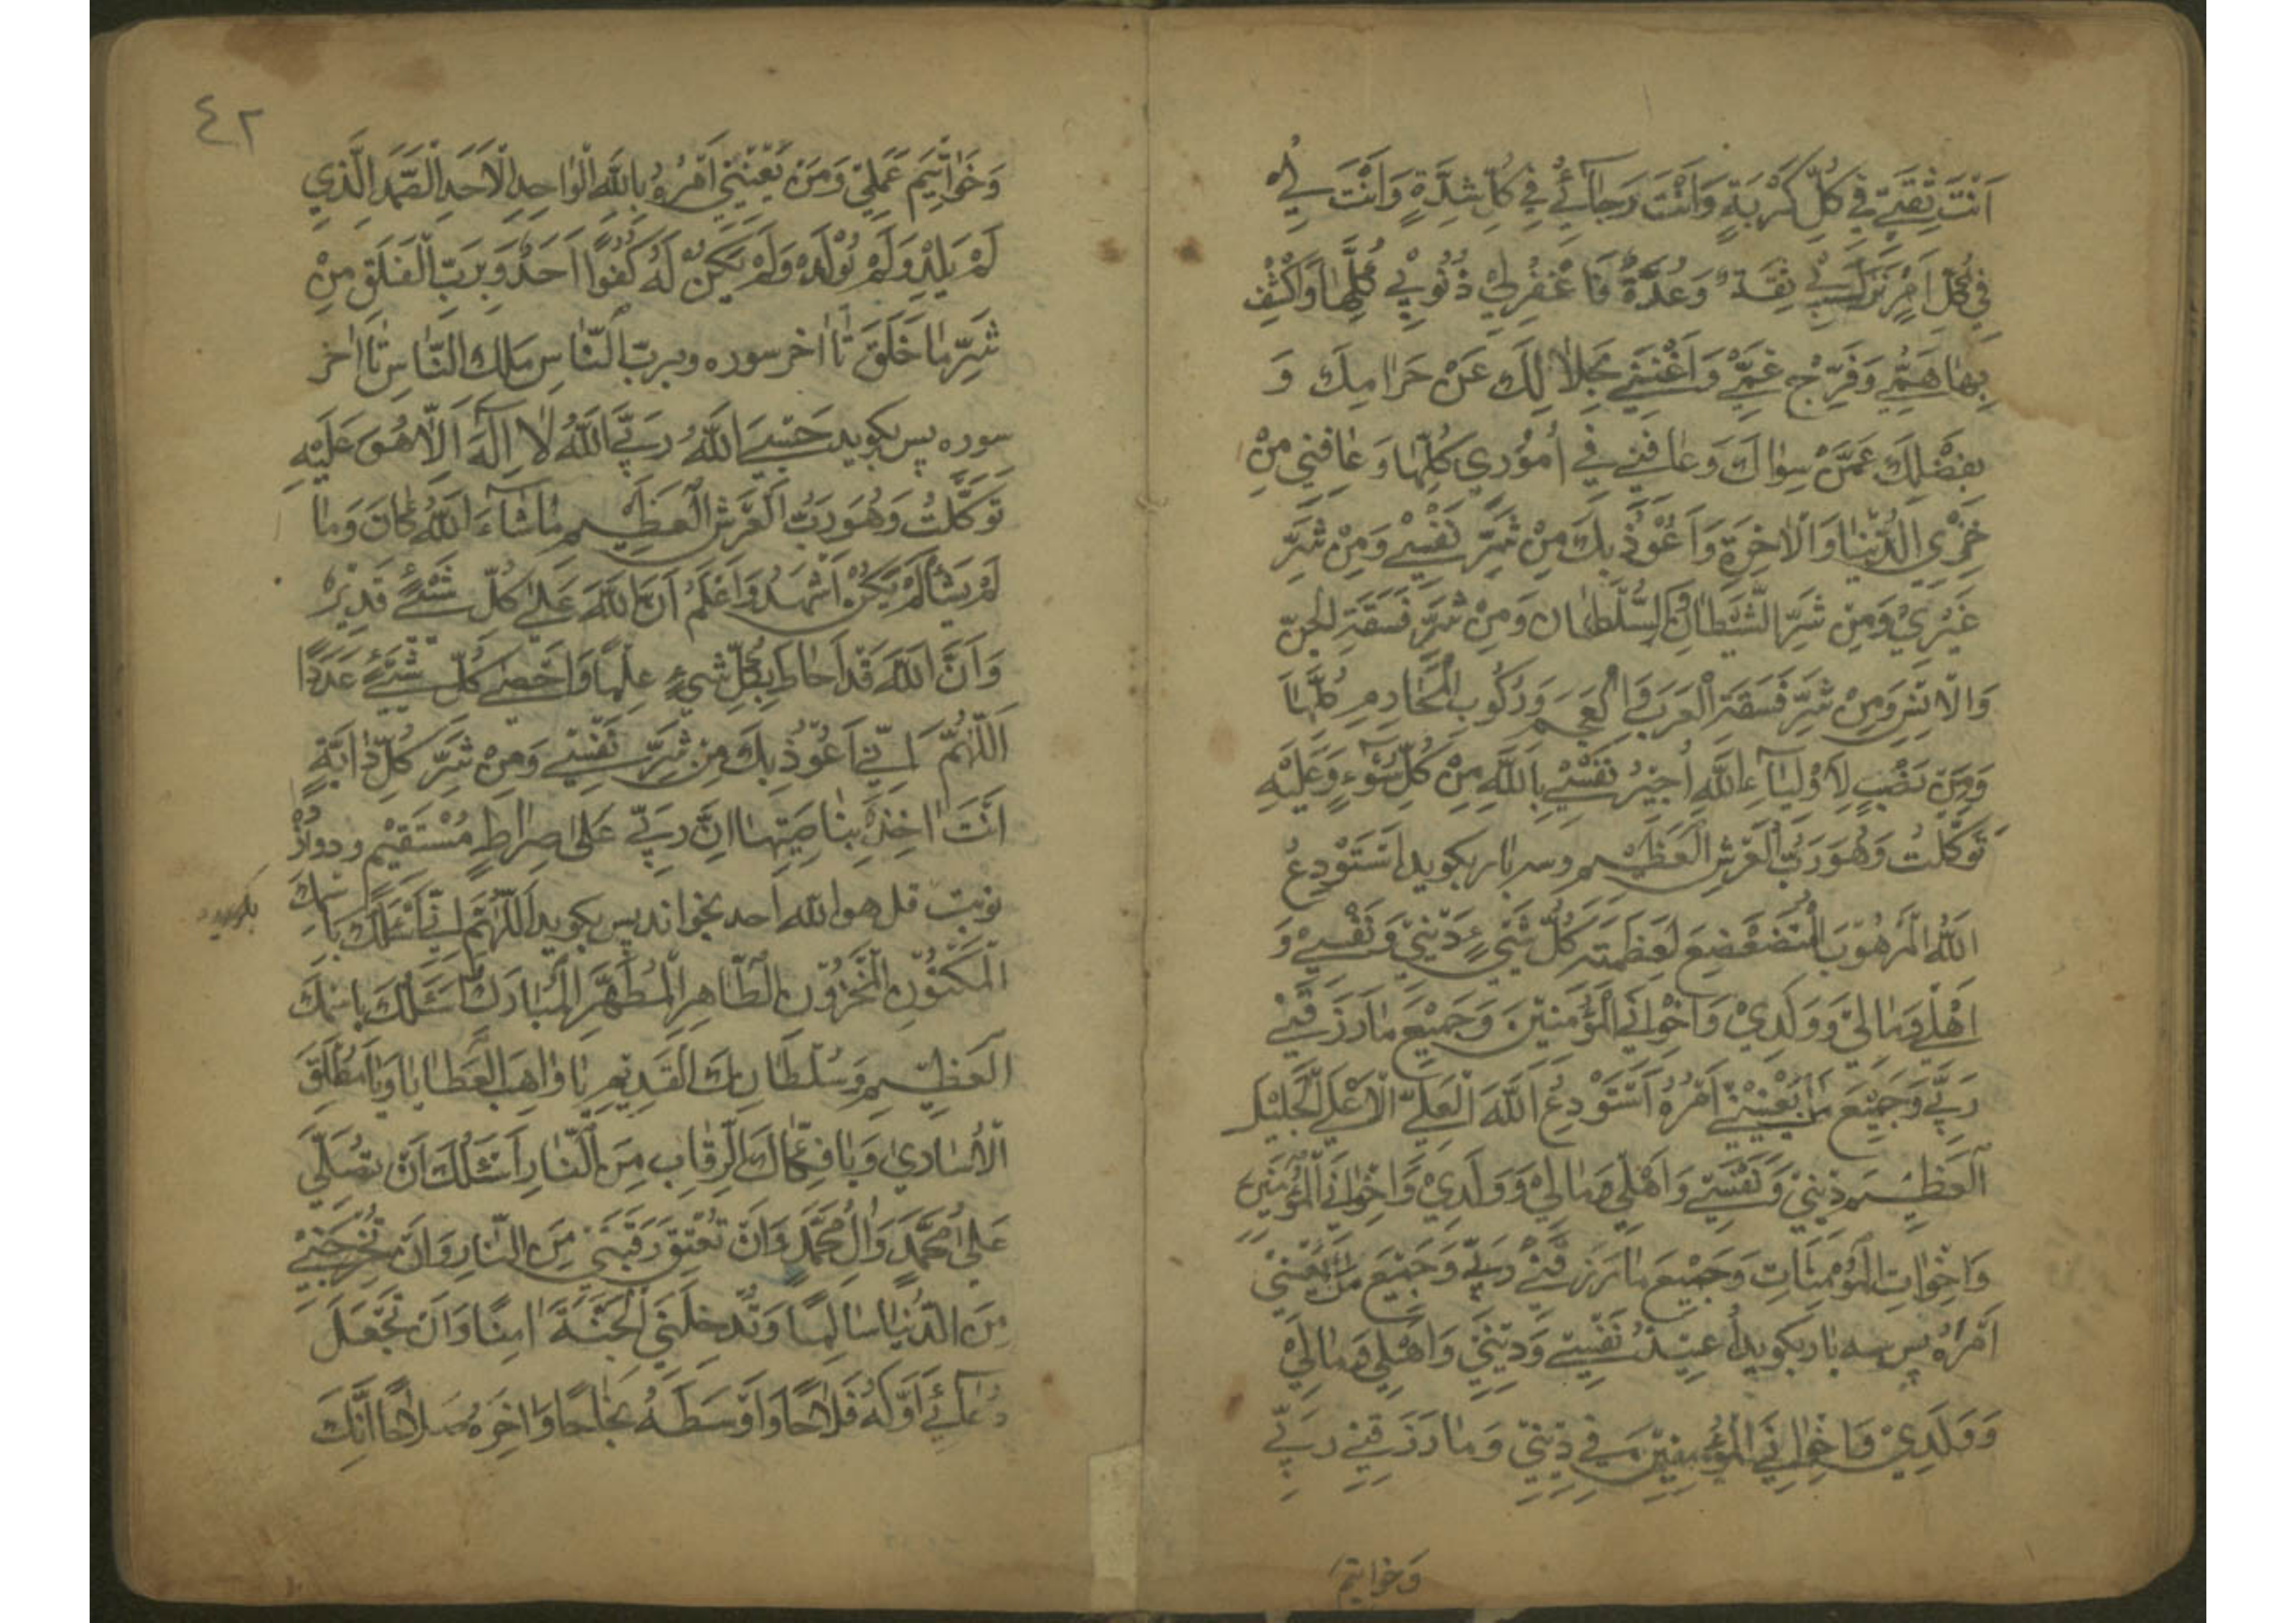 اَنْتَ ثِقَتي في كُلِّ كُرْبَةٍ وَاَنْتَ رَجآئي في كُلِّ شِدَّةٍ وَاَنْتَ لي
في كُلِّ اَمْرٍ نَزَلَ بي ثِقَةٌ وَعُدَّةٌ فَاغْفِرْلي ذُنُوبي كُلَّها وَاكْشِفْ
بِها هَمّي وَفَرِّجْ غَمّي وَاَغْنِني بِحَلالِكَ عَنْ حَرامِكَ وَ
بِفَضْلِكَ عَمَّنْ سِواكَ وَعافِني في اُمُوري كُلِّها وَعافِني مِنْ
خِزْيِ الدُّنْيا وَالْاخِرَةِ وَاَعُوْذُ بِكَ مِنْ شَرِّ نَفْسي وَمِنْ شَرِّ
غَيْري وَمِنْ شَرِّ الشَّيْطانِ وَالسُّلْطانِ وَمِنْ شَرِّ فَسَقَةِ الْجِنِّ
وَالْاِنْسِ وَمِنْ شَرِّ فَسَقَةِ الْعَرَبِ وَالْعَجَمِ وَرُكُوبِ الْمَحارِمِ كُلِّها
وَمِنْ نَصْبٍ لِاَوْلِيآءِ اللهِ اُجيرُ نَفْسي بِاللهِ مِنْ كُلِّ سُوْءٍ وَعَلَيْهِ
تَوَكَّلْتُ وَهُوَ رَبُّ الْعَرْشِ الْعَظيْمِ وسه بار بكويد اَسْتَوْدِعُ
اللهَ الْمَرْهُوْبَ الْمُتَضَعْضِعَ لِعَظَمَتِهِ كُلُّ شَيْءٍ ديْني وَنَفْسي وَ
اَهْلي وَمالي وَوَلَدِيْ وَاِخْوانِي الْمُؤْمِنيْنَ وَجَميْعَ ما رَزَقَني
رَبّي وَجَميْعَ مَنْ يَعْنيْني اَمْرُهُ اَسْتَوْدِعُ اللهَ الْعَلِيَّ الْاَعْلَى الْجَليْلَ
الْعَظيْمَ ديْني وَنَفْسي وَاَهْلي وَمالي وَوَلَدِيْ وَاِخْوانِي الْمُؤْمِنيْنَ
وَاَخَواتِ الْمُؤْمِناتِ وَجَميْعَ ما رَزَقَني رَبّي وَجَميْعَ مَنْ يَعْنيْني
اَمْرُهُ پس سه بار بكويد اُعيْذُ نَفْسي وَديْني وَاَهْلي وَمالي
وَوَلَدِيْ وَاِخْوانِي الْمُؤْمِنيْنَ في ديْني وَما رَزَقَني رَبّي
وَخواتيمَ
٤٢
وَخَواتيمَ عَمَلي وَمَنْ يَعْنيْني اَمْرُهُ بِاللهِ الْواحِدِ الْاَحَدِ الْصَّمَدِ الَّذي
لَمْ يَلِدْ وَلَمْ يُوْلَدْ وَلَمْ يَكُنْ لَهُ كُفُوًا اَحَدٌ وَبِرَبِّ الْفَلَقِ مِنْ
شَرِّ ما خَلَقَ تا اخر سوره وبربِّ النّاسِ مَلِكِ النّاسِ تا اخر
سوره پس بكويد حَسْبِيَ اللهُ رَبِّيَ اللهُ لا اِلهَ اِلّا هُوَ عَلَيْهِ
تَوَكَّلْتُ وَهُوَ رَبُّ الْعَرْشِ الْعَظيْمِ ماشآءَ اللهُ كانَ وَما
لَمْ يَشَأْ لَمْ يَكُنْ اَشْهَدُ وَاَعْلَمُ اَنَّ اللهَ عَلى كُلِّ شَيْءٍ قَديْرٌ
وَاَنَّ اللهَ قَدْ اَحاطَ بِكُلِّ شَيْءٍ عِلْمًا وَاَحْصى كُلَّ شَيْءٍ عَدَدًا
اَللّهُمَّ اِنّي اَعُوْذُ بِكَ مِنْ شَرِّ نَفْسي وَمِنْ شَرِّ كُلِّ دابَّةٍ
اَنْتَ اخِذٌ بِناصِيَتِها اِنَّ رَبّي عَلى صِراطٍ مُسْتَقيْمٍ ودوازْ
نوبت قل هو الله احد بخواند پس بكويد اَللّهُمَّ اِنّي اَسْئَلُكَ بِاسْمِكَ
الْمَكْنُوْنِ الْمَخْزُوْنِ الطّاهِرِ الْمُطَهَّرِ الْمُبارَكِ اَسْئَلُكَ بِاسْمِكَ
الْعَظيْمِ وَسُلْطانِكَ الْقَديْمِ يا واهِبَ الْعَطايا وَيا مُطْلِقَ
الْاُسارى وَيا فَكّاكَ الرِّقابِ مِنَ النّارِ اَسْئَلُكَ اَنْ تُصَلِّيَ
عَلى مُحَمَّدٍ وَالِ مُحَمَّدٍ وَاَنْ تُعْتِقَ رَقَبَتي مِنَ النّارِ وَاَنْ تُخْرِجَني
مِنَ الدُّنْيا سالِمًا وَتُدْخِلَنِي الْجَنَّةَ امِنًا وَاَنْ تَجْعَلَ
دُعآئي اَوَّلَهُ فَلاحًا وَاَوْسَطَهُ نَجاحًا وَاخِرَهُ صَلاحًا اِنَّكَ